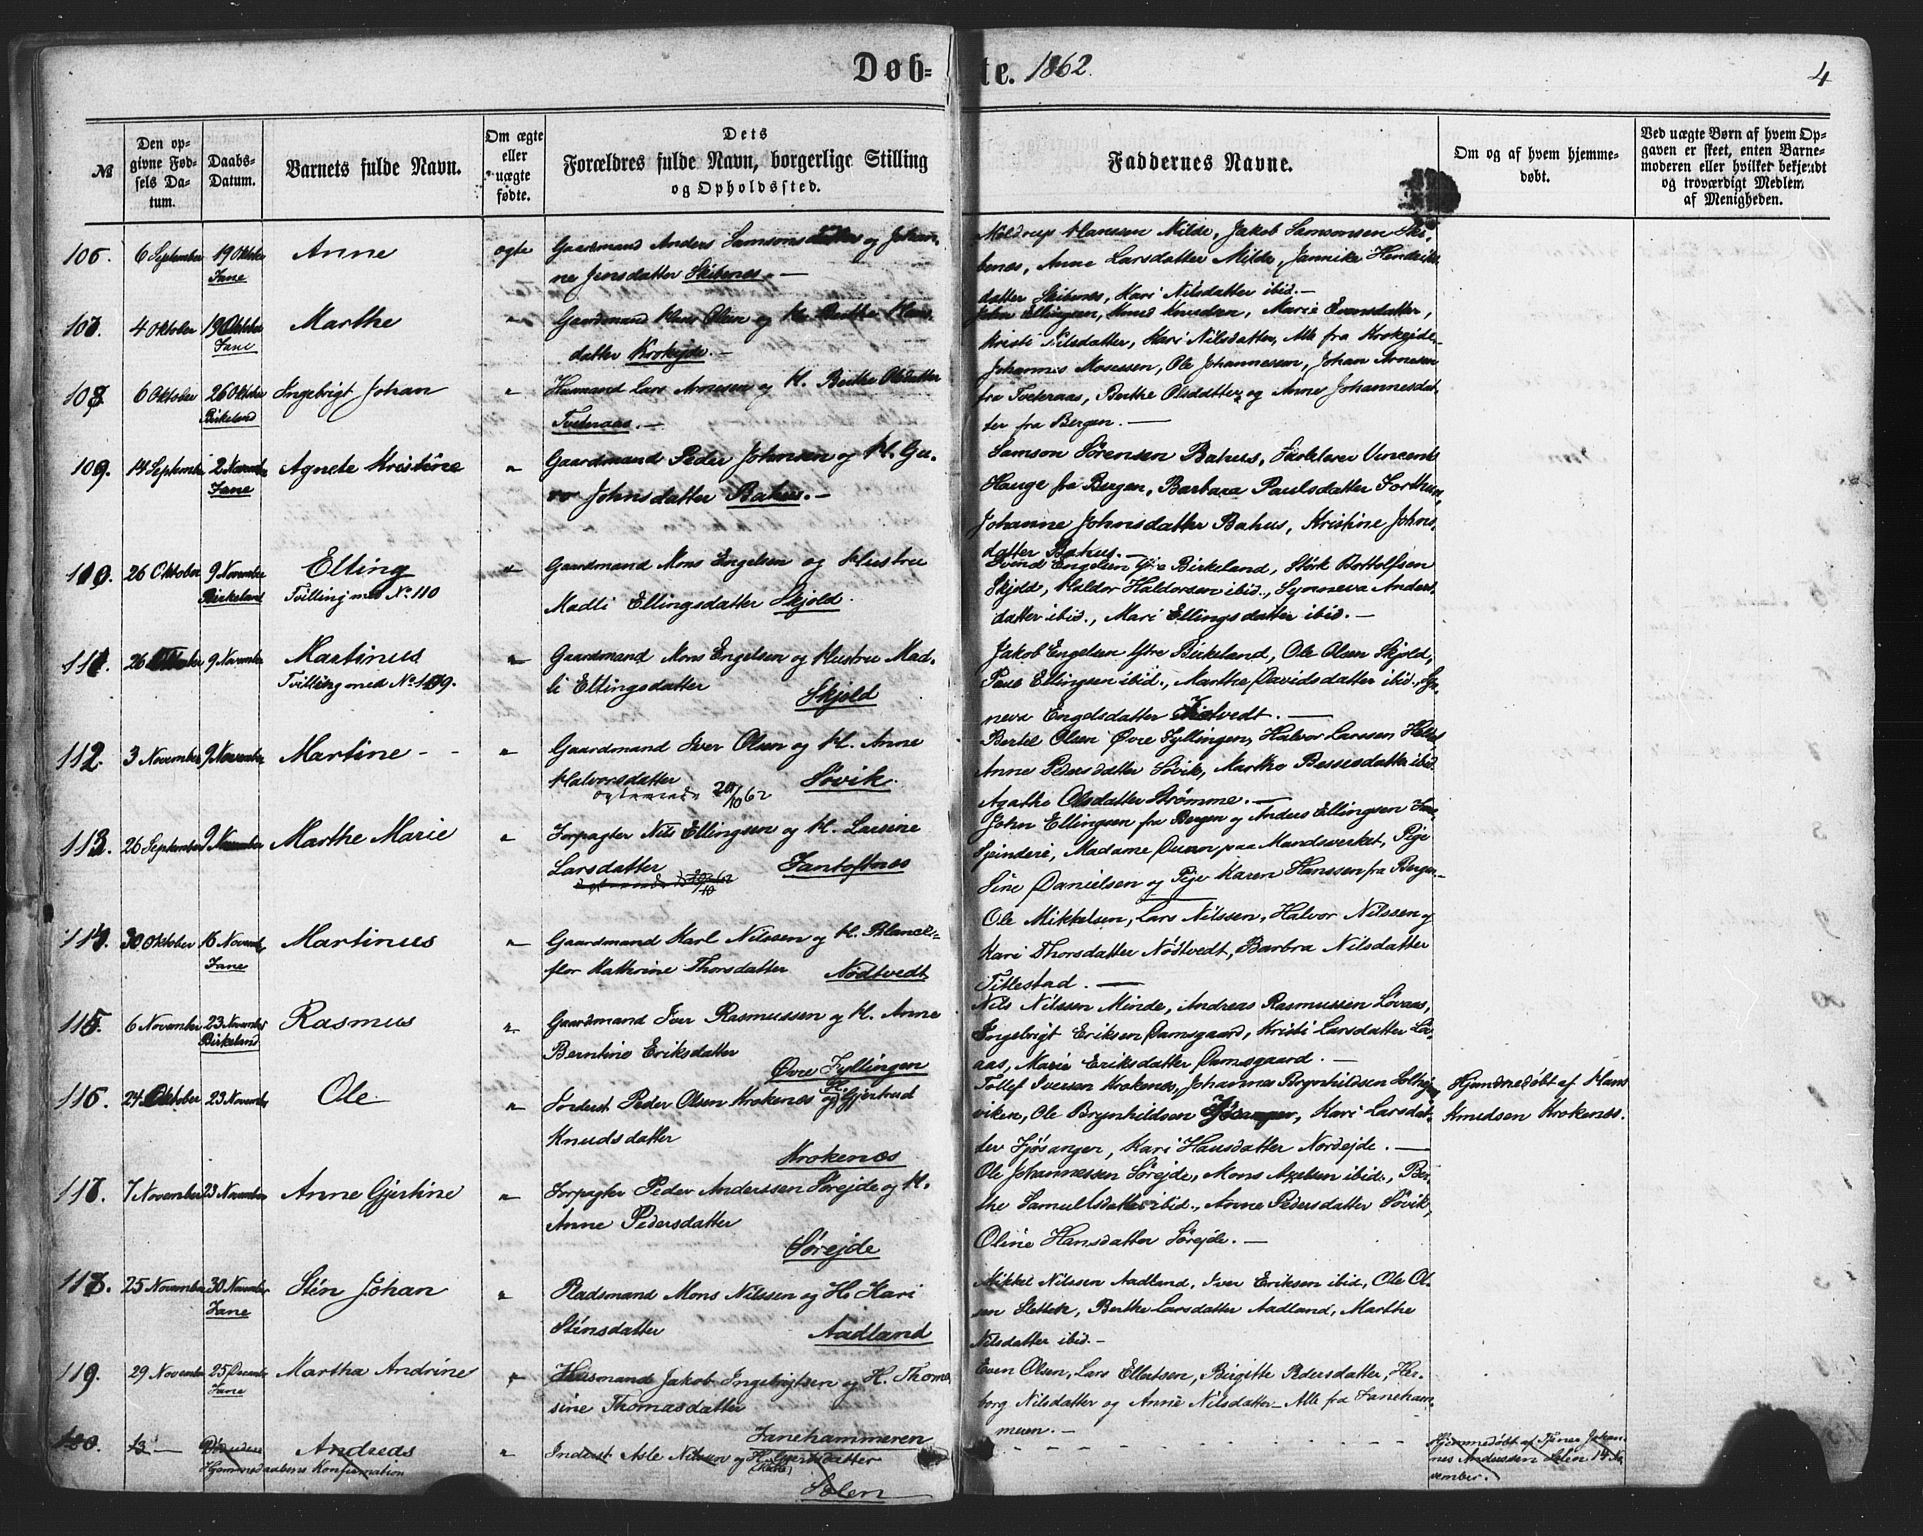 Døb=te. 1862. 4
№
Den opgivne Fødsels Datum.
Daabs-Datum.
Barnets fulde Navn.
Om ægte eller uægte fødte.
Dets Forældres fulde Navn, borgerlige Stilling og Opholdssted.
Faddernes Navne.
Om og af hvem hjemmedøbt.
Ved uægte Børn af hvem Opgaven er skeet, enten Barnemoderen eller hvilket bekjendt og troværdigt Medlem af Menigheden.
106. 6 September 19 Oktober Fane Anne ægte Gaardmand Anders Samsonsen og Johanne Jensdatter Skibenes. —
Hansen Milde, Jakob Samsonsen Skibenes, Anne Larsdatter Milde, Jannike Hendriksdatter Skibenes, Kari Nilsdatter ibid. —
107. 4 Oktober 19 Oktober Fane Marthe " Gaardmand Hans Olsen og H. Berthe Hansdatter Krokejde. —
John Ellingsen, Knud Knudsen, Marie Evensdatter, Kristi Nilsdatter, Kari Nilsdatter, Alle fra Krokejde. —
108. 6 Oktober 26 Oktober Birkeland Ingebrigt Johan " Husmand Lars Arnesen og H. Berthe Olsdatter Tveteraas. —
Johannes Mosessen, Ole Johannessen, Johan Arnesen fra Tveteraas, Berthe Olsdatter og Anne Johannesdatter fra Bergen. —
109. 14 September 2 November Fane Agnete Kristine " Gaardmand Peder Johnsen og H. Guro Johnsdatter Bahus. —
Samson Sørensen Bahus, Skolelærer Vincent Hauge fra Bergen, Barbara Paulsdatter Forthun, Johanne Johnsdatter Bahus, Kristine Johnsdatter Bahus. —
110. 26 Oktober 9 November Birkeland Elling Tvilling med No 110 " Gaardmand Mons Engelsen og Hustru Madli Ellingsdatter Skjold.
Svend Engelsen Birkeland, Størk Bottolfsen Skjold, Haldor Haldorsen ibid., Synneva Andersdatter ibid., Mari Ellingsdatter ibid. —
111. 26 Oktober 9 November Martinus Tvilling med No 109. " Gaardmand Mons Engelsen og Hustru Madli Ellingsdatter Skjold
Jakob Engelsen Ytre Birkeland, Ole Olsen Skjold, Paul Ellingsen ibid., Marthe Davidsdatter ibid., Synneva Engelsdatter —
112. 3 November 9 November Martine - - " Gaardmand Iver Olsen og H. Anne Halvorsdatter Søvik.
20/10 62
Bertil Olsen Øvre Fyllingen, Halvor Larssen Anne Pedersdatter Søvik, Marthe Bessesdatter ibid. Agathe Olsdatter Strømme. —
113. 26 September 9 November Marthe Marie " Forpagter Nils Ellingsen og H. Larsine Larsdatter Fantoftnes
John Ellingsen fra Bergen og Anders Ellingsen Madame paa Mandsverket, Pige Sine Danielsen og Pige Karen Hanssen fra Bergen. —
114. 30 Oktober 16 Novemb. Fane Martinus " Gaardmand Karl Nilssen og H. Blanceflor Kathrine Thorsdatter Nødtvedt
Ole Mikkelsen, Lars Nilssen, Halvor Nilssen og Kari Thorsdatter Nødtvedt, Barbra Nilsdatter Titlestad. —
115. 6 November 23 November Birkeland Rasmus " Gaardmand Iver Rasmussen og H. Anne Berntine Eriksdatter Øvre Fyllingen
Nils Nilssen Minde, Andreas Rasmussen Løvaas, Ingebrigt Eriksen Damsgaard, Kristi Larsdatter Løvaas, Marie Eriksdatter Damsgaard. —
116. 24 Oktober 23 November Ole " Inderst Peder Olsen Krokenæs og H. Gjertrud Knudsdatter Krokenæs
Tollef Iversen Krokenæs, Johannes Brynhildsen Solhejmsviken, Ole Brynhildsen Fjøsanger, Kari Larsdatter Fjøsanger, Kari Hansdatter Nordejde. —
Hjemmedøbt af Hans Knudsen Krokenæs.
117. 7 November 23 November Anne Gjertine " Forpagter Peder Anderssen Sørejde og H. Anne Pedersdatter Sørejde
Ole Johannessen Sørejde, Mons Axelsen ibid., Berthe Samuelsdatter ibid., Anne Pedersdatter Søvik, Oline Hansdatter Sørejde. —
118. 25 November 30 November Fane Stén Johan " Pladsmand Mons Nilssen og H. Kari Sténsdatter Aadland
Mikkel Nilssen Aadland, Iver Eriksen ibid, Ole Olsen Sletten, Berthe Larsdatter Aadland, Marthe Nilsdatter ibid. —
119. 29 November 25 December Fane Martha Andrine " Husmand Jakob Ingebrigtsen og H. Thomasine Thomasdatter Fanehammeren
Even Olsen, Lars Ellertsen, Birgitte Pedersdatter, Herborg Nilsdatter og Anne Nilsdatter — Alle fra Fanehammeren. —
120. 13 — Døde før Hjemmedaabens Konfirmation Andreas " Inderst Asle Nilssen og H. Gjertsdatter Solen
Hjemmedøbt af Tjener Johannes Anderssen Solen 14 November.